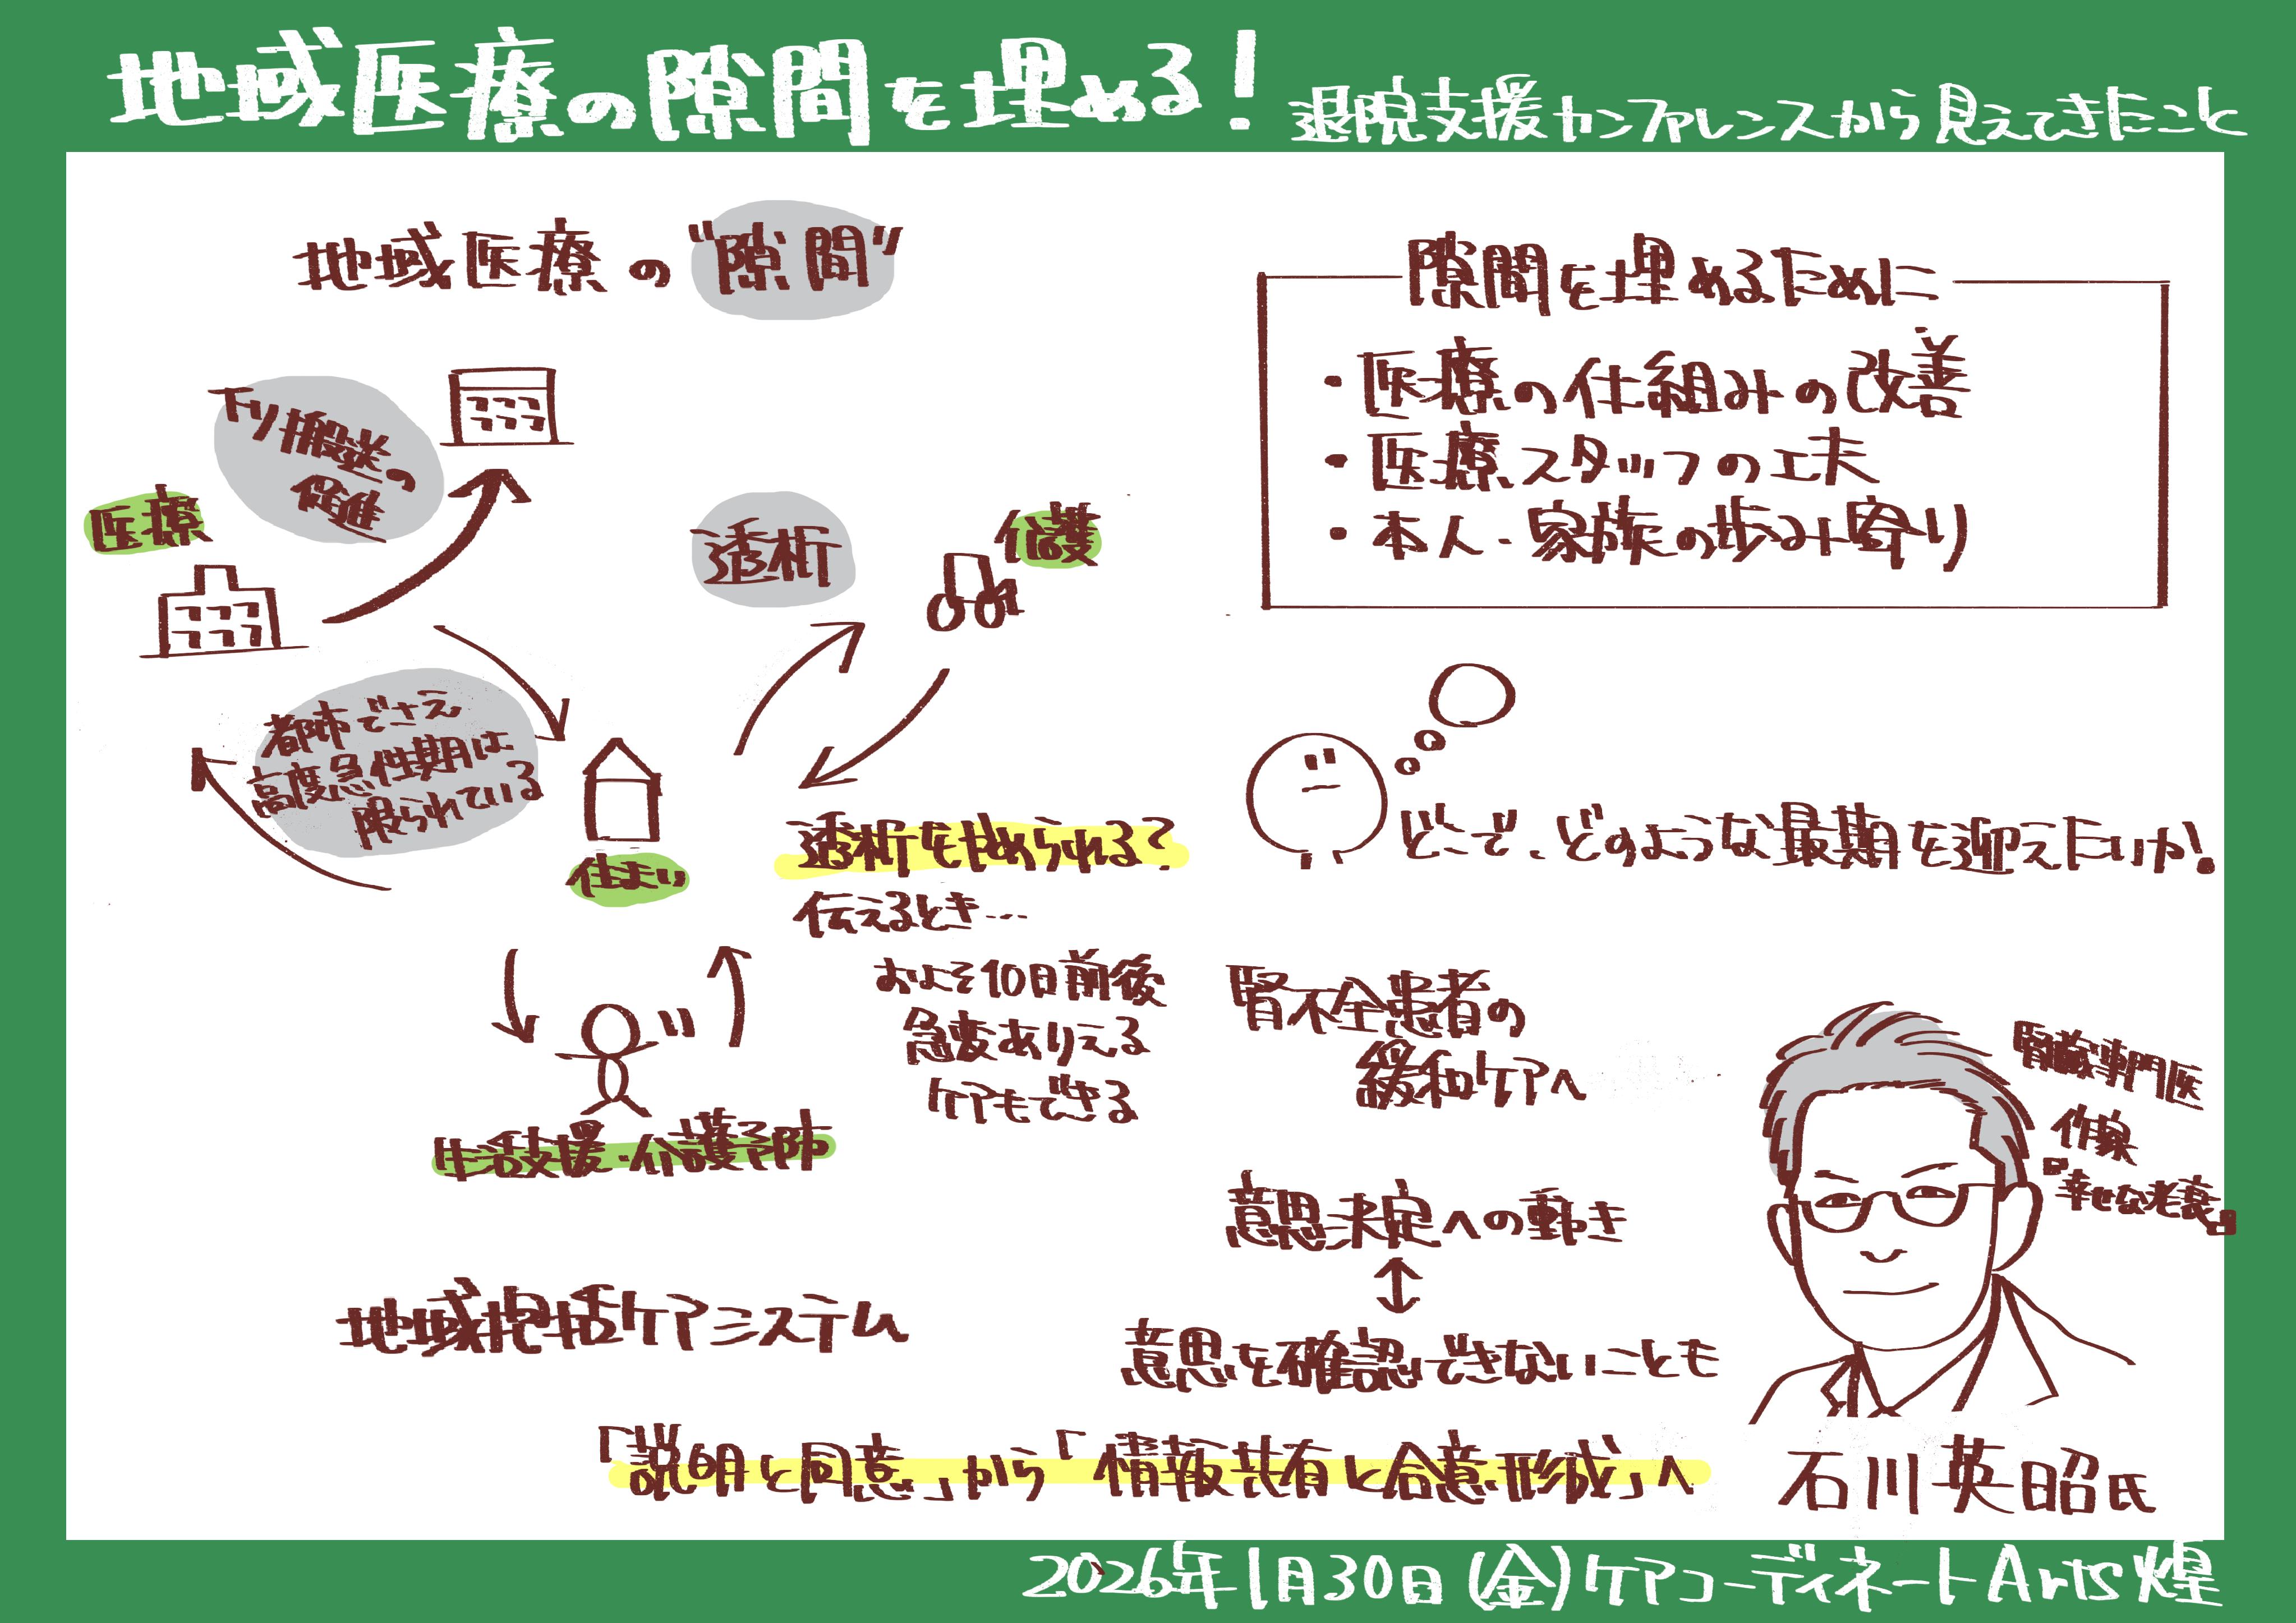 地域医療の隙間を埋める！ 退院支援カンファレンスから見えてきたこと
地域医療の“隙間”
下り搬送の
促進
医療
都市でさえ
高度急性期は
限られている
透析
介護
住まい
透析を止められる?
伝えるとき…
およそ10日前後
急変ありえる
ケアもできる
生活支援・介護予防
地域包括ケアシステム
隙間を埋めるために
・医療の仕組みの改善
・医療スタッフの工夫
・本人・家族の歩み寄り
どこで、どのような最期を迎えたいか!
腎不全患者の
緩和ケアへ
意思決定への動き
意思を確認できないことも
「説明と同意」から「情報共有と合意形成」へ
腎臓専門医
作家
『幸せな老衰』
石川英昭氏
2026年1月30日(金)ケアコーディネートArts煌